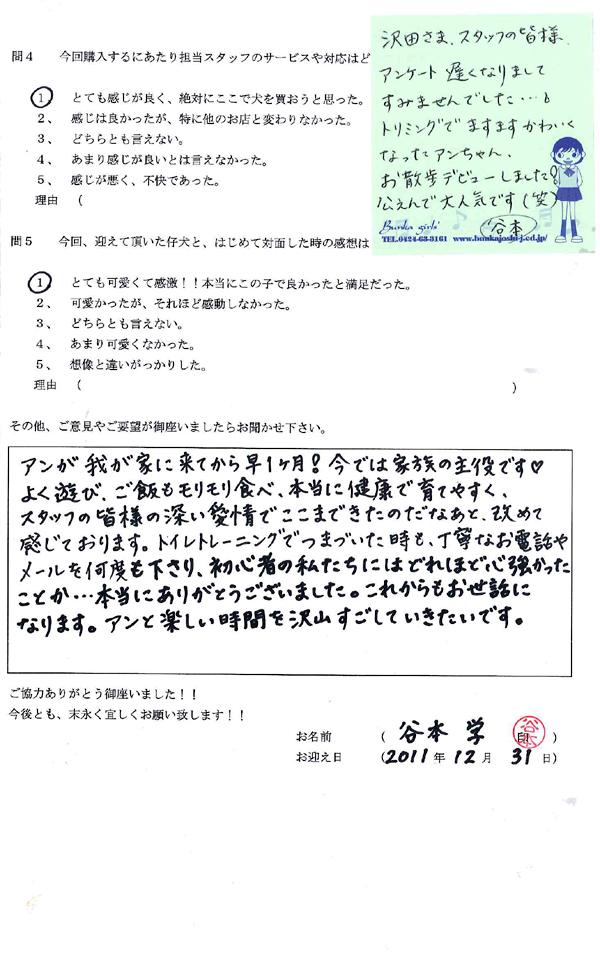 問4 今回購入するにあたり担当スタッフのサービスや対応はど
1 とても感じが良く、絶対にここで犬を買おうと思った。
2、 感じは良かったが、特に他のお店と変わりなかった。
3、 どちらとも言えない。
4、 あまり感じが良いとは言えなかった。
5、 感じが悪く、不快であった。
理由 (
沢田さま、スタッフの皆様、
アンケート 遅くなりまして
すみませんでした…
トリミングで ますます かわいく
なったアンちゃん、
お散歩デビューしました!
公えんで大人気です(笑)
谷本
Bunka girls'
TEL.0424-63-3161 www.bunkajoshi-j.ed.jp/
問5 今回、迎えて頂いた仔犬と、はじめて対面した時の感想は
1 とても可愛くて感激!!本当にこの子で良かったと満足だった。
2、 可愛かったが、それほど感動しなかった。
3、 どちらとも言えない。
4、 あまり可愛くなかった。
5、 想像と違いがっかりした。
理由 ( )
その他、ご意見やご要望が御座いましたらお聞かせ下さい。
アンが 我が家に来てから早1ヶ月!今では家族の主役です♡
よく遊び、ご飯もモリモリ食べ、本当に健康で育てやすく、
スタッフの皆様の深い愛情でここまできたのだなあと、改めて
感じております。トイレトレーニングでつまづいた時も、丁寧なお電話や
メールを何度も下さり、初心者の私たちにはどれほど心強かった
ことか…本当にありがとうございました。これからもお世話に
なります。アンと楽しい時間を沢山すごしていきたいです。
ご協力ありがとう御座いました!!
今後とも、末永く宜しくお願い致します!!
お名前 ( 谷本 学 印 )
お迎え日 (2011年 12月 31日)